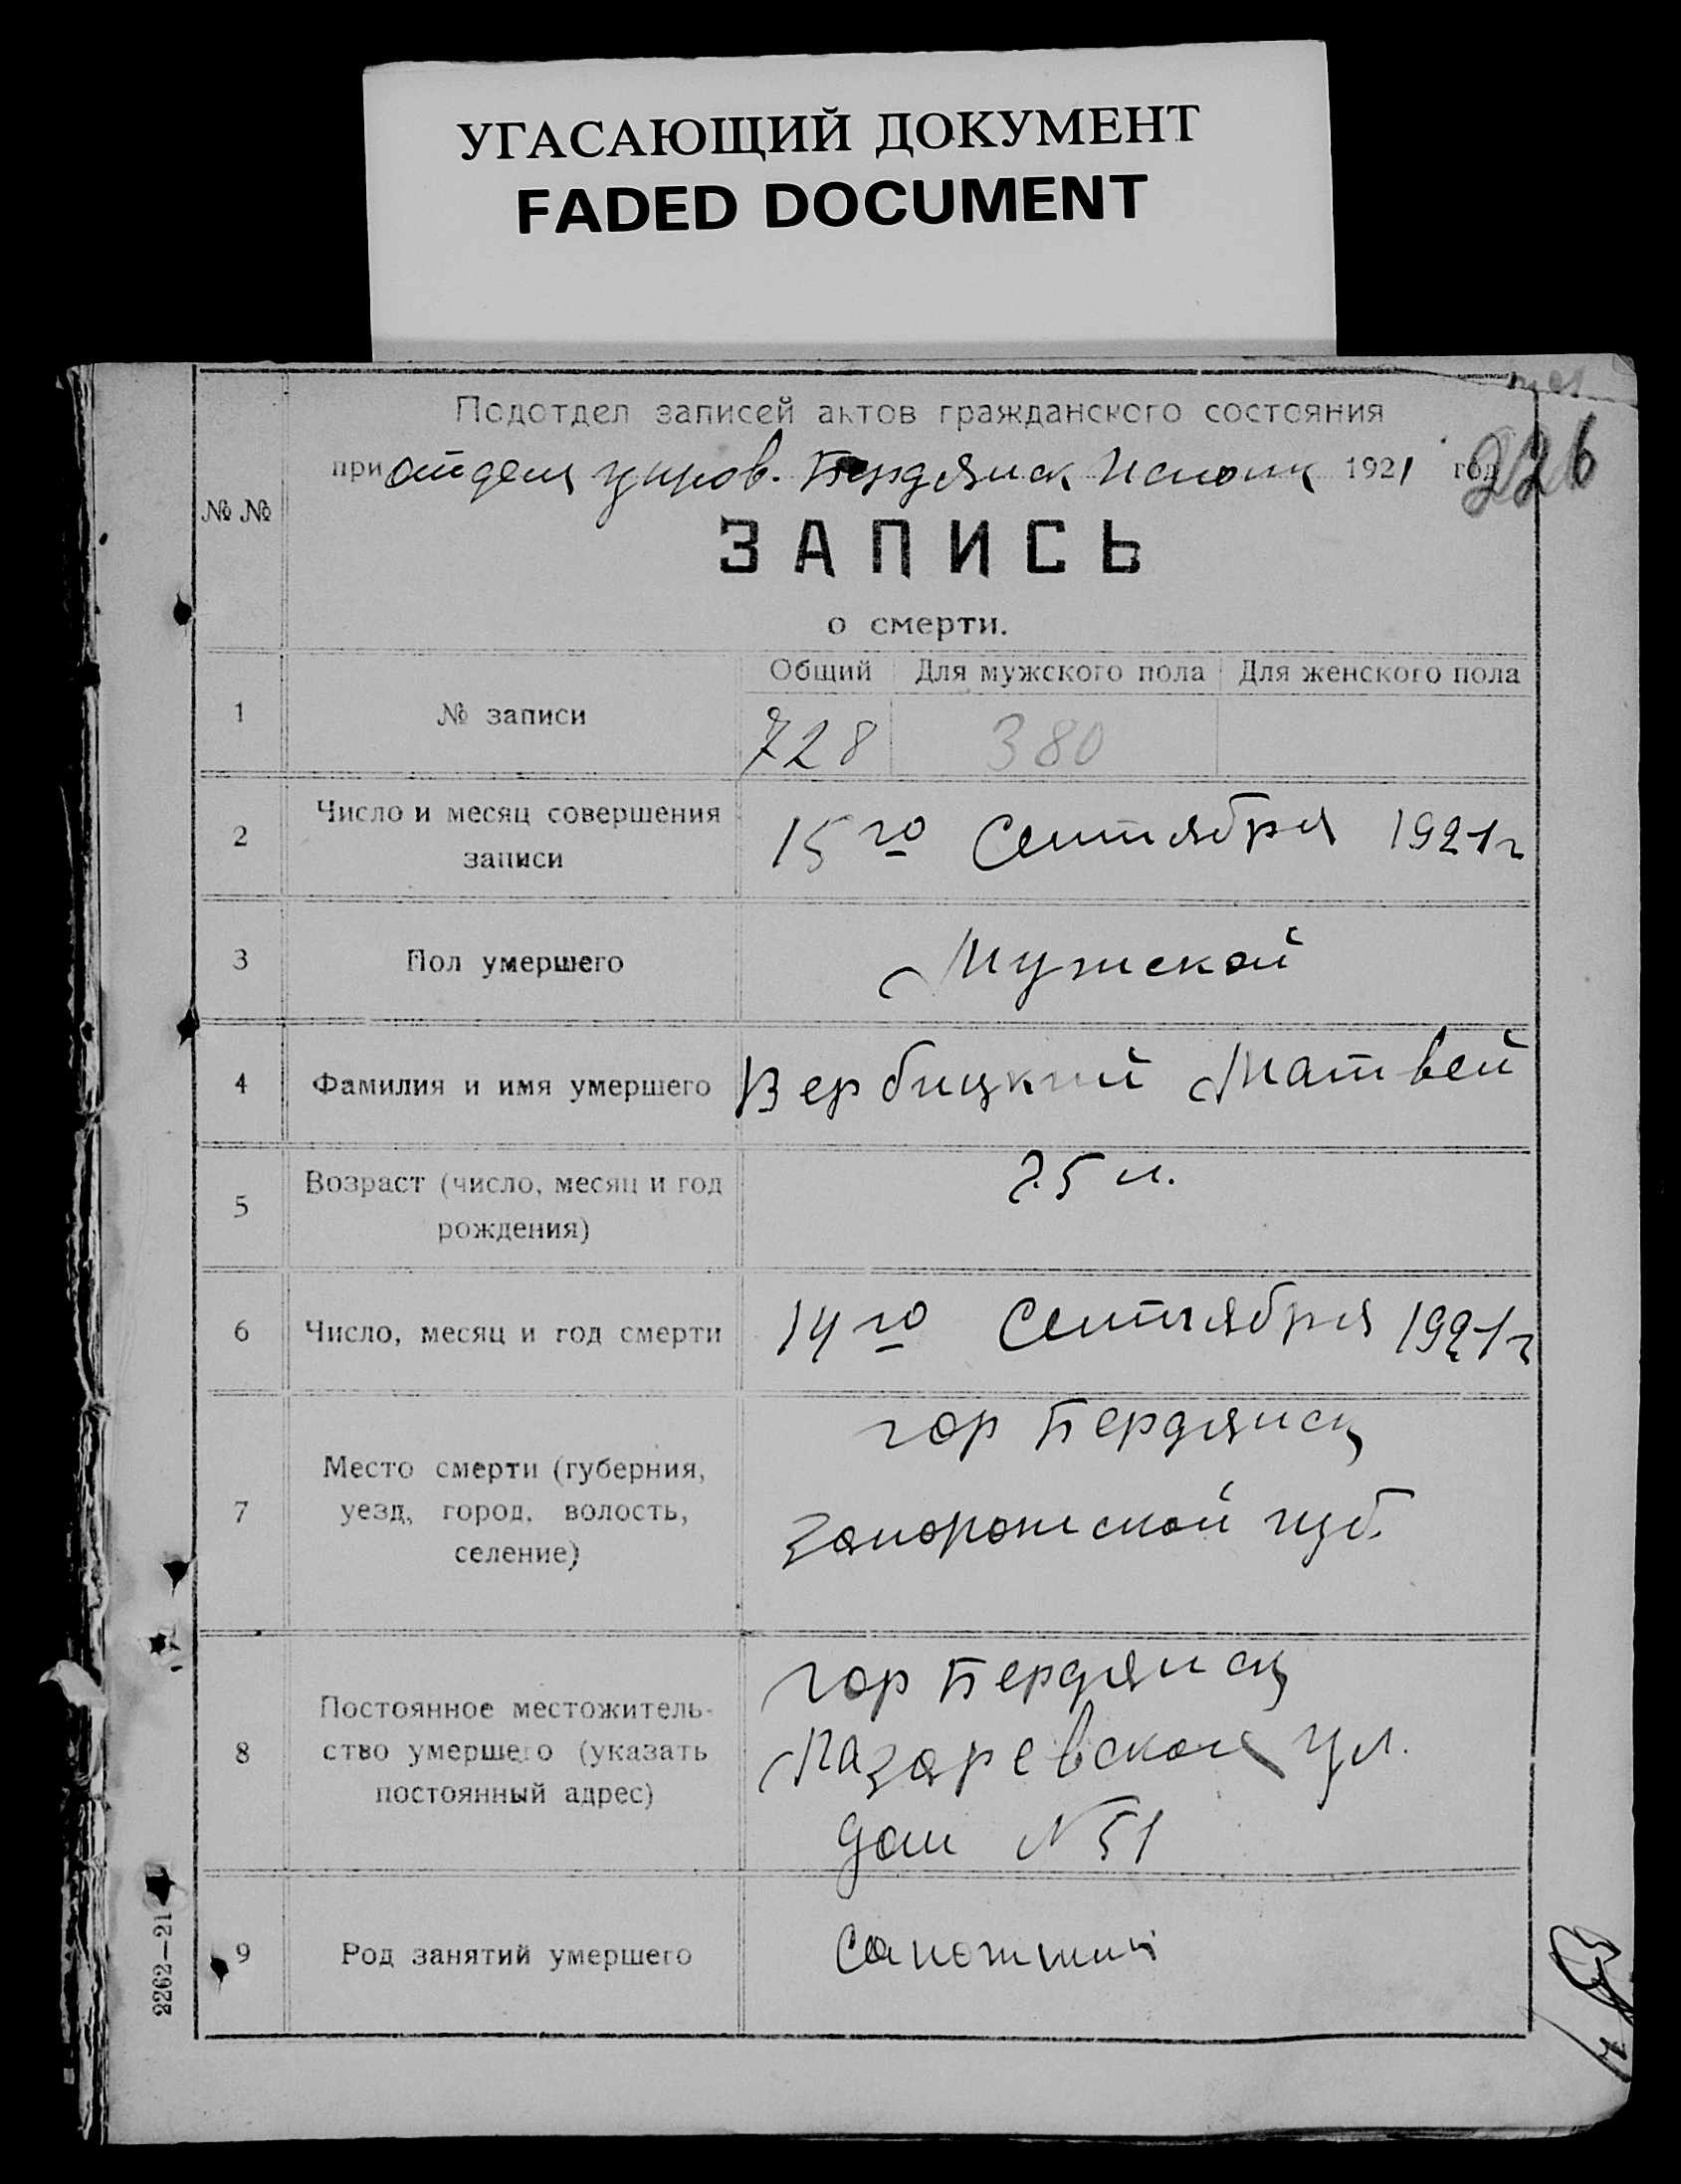 УГАСАЮЩИЙ ДОКУМЕНТ
FADED DOCUMENT
Подотдел записей актов гражданского состояния
при отделе управ. Бердянск Исполк 1921 год
226
№ №
ЗАПИСЬ
о смерти.
Общий Для мужского пола Для женского пола
1 № записи 728 380
2 Число и месяц совершения
записи
15го Сентября 1921г
3 Пол умершего Мужской
4 Фамилия и имя умершего Вербицкий Матвей
5 Возраст (число, месяц и год
рождения)
25 л.
6 Число, месяц и год смерти 14го Сентября 1921г
7 Место смерти (губерния,
уезд, город, волость,
селение)
гор Бердянск
Запорожской губ.
8 Постоянное местожитель-
ство умершего (указать
постоянный адрес)
гор Бердянск
Лазаревская ул.
дом № 51
9 Род занятий умершего Сапожник
2262—21